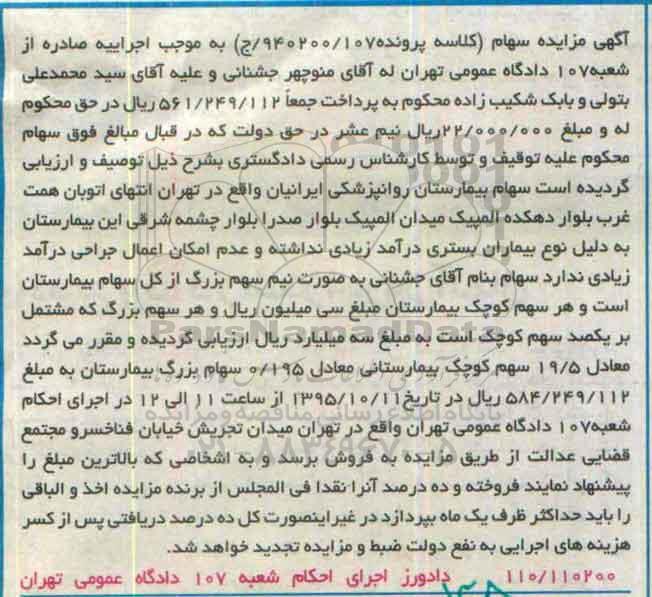 آگهی مزایده سهام (کلاسه پرونده۹۴۰۲۰۰/۱۰۷/ج) به موجب اجراییه صادره از
شعبه۱۰۷ دادگاه عمومی تهران له آقای منوچهر جشنانی و علیه آقای سید محمدعلی
بتولی و بابک شکیب زاده محکوم به پرداخت جمعاً ۵۶۱/۲۴۹/۱۱۲ ریال در حق محکوم
له و مبلغ ۲۲/۰۰۰/۰۰۰ریال نیم عشر در حق دولت که در قبال مبالغ فوق سهام
محکوم علیه توقیف و توسط کارشناس رسمی دادگستری بشرح ذیل توصیف و ارزیابی
گردیده است سهام بیمارستان روانپزشکی ایرانیان واقع در تهران انتهای اتوبان همت
غرب بلوار دهکده المپیک میدان المپیک بلوار صدرا بلوار چشمه شرقی این بیمارستان
به دلیل نوع بیماران بستری درآمد زیادی نداشته و عدم امکان اعمال جراحی درآمد
زیادی ندارد سهام بنام آقای جشنانی به صورت نیم سهم بزرگ از کل سهام بیمارستان
است و هر سهم کوچک بیمارستان مبلغ سی میلیون ریال و هر سهم بزرگ که مشتمل
بر یکصد سهم کوچک است به مبلغ سه میلیارد ریال ارزیابی گردیده و مقرر می گردد
معادل ۱۹/۵ سهم کوچک بیمارستانی معادل ۰/۱۹۵ سهام بزرگ بیمارستان به مبلغ
۵۸۴/۲۴۹/۱۱۲ ریال در تاریخ۱۳۹۵/۱۰/۱۱ از ساعت ۱۱ الی ۱۲ در اجرای احکام
شعبه۱۰۷ دادگاه عمومی تهران واقع در تهران میدان تجریش خیابان فناخسرو مجتمع
قضایی عدالت از طریق مزایده به فروش برسد و به اشخاصی که بالاترین مبلغ را
پیشنهاد نمایند فروخته و ده درصد آنرا نقدا فی المجلس از برنده مزایده اخذ و الباقی
را باید حداکثر ظرف یک ماه بپردازد در غیراینصورت کل ده درصد دریافتی پس از کسر
هزینه های اجرایی به نفع دولت ضبط و مزایده تجدید خواهد شد.
۱۱۰/۱۱۰۲۰۰ دادورز اجرای احکام شعبه ۱۰۷ دادگاه عمومی تهران
ParsNamadData